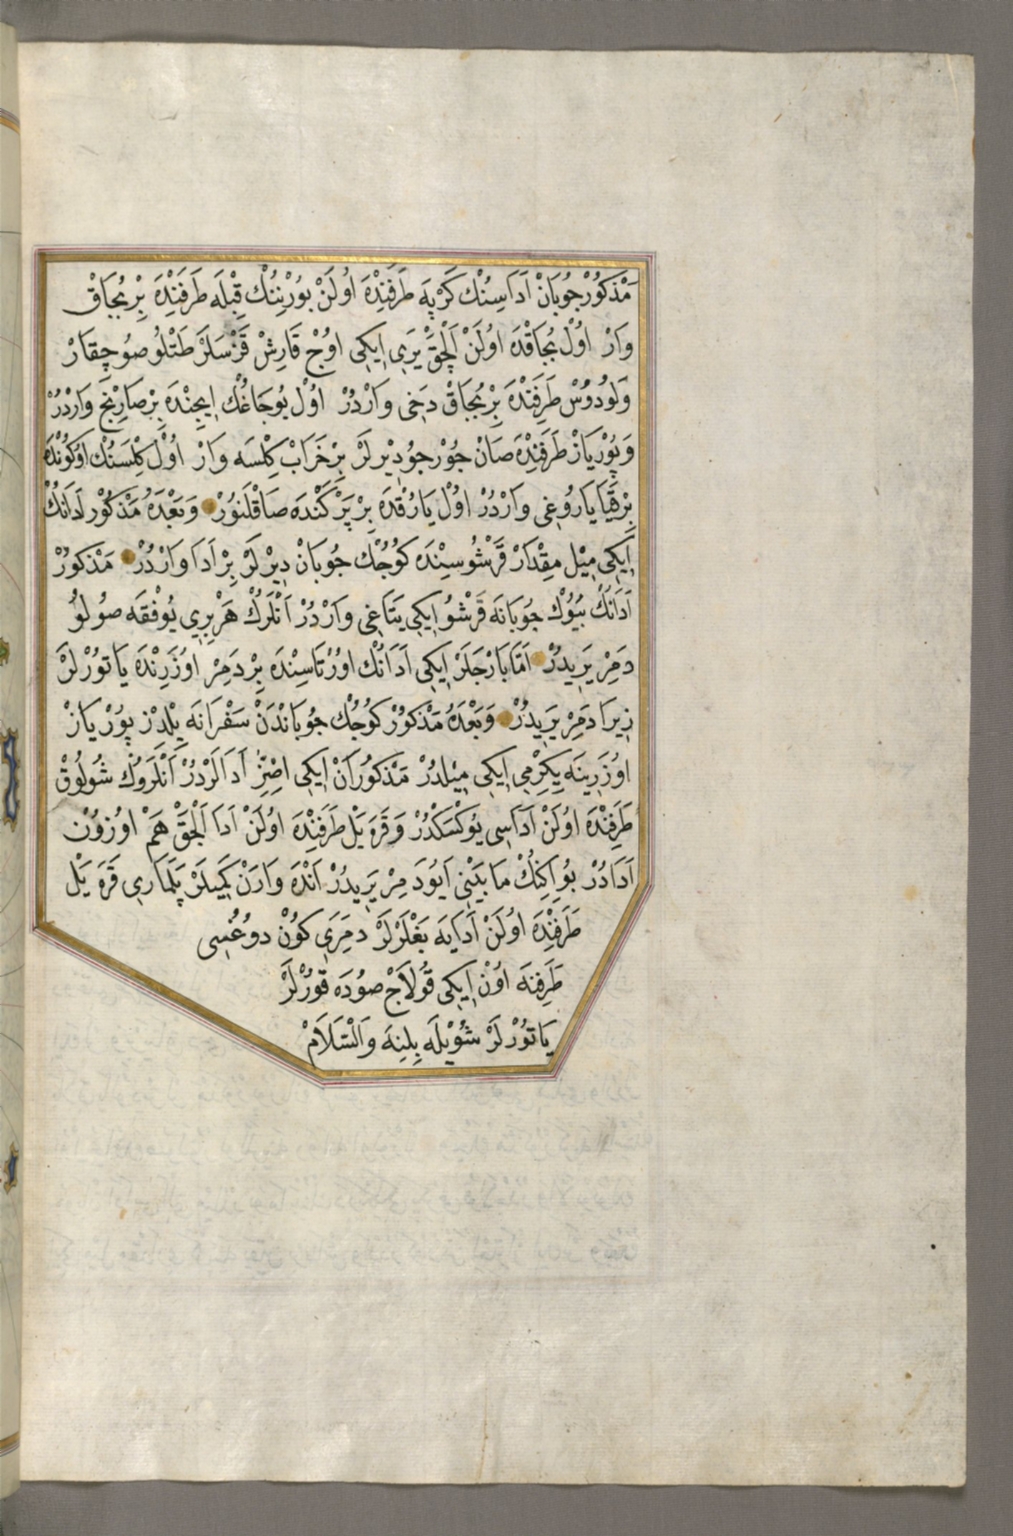 مَذْكُورْ جُوبَانْ اَدَاسِنُكْ كَرْپَه طَرَفِنْدَه اُولَنْ بُورْنِنُكْ قِبْلَه طَرَفِنْدَه بِرْ بُجَاقْ
وَارْ اُولْ بُجَاقْدَه اُولَنْ اَلْچَقْ يَرِي اِيكِي اوُجْ قَارِشْ قَزْسَلَرْ طَتْلُو صُو چِقَارْ
وَلُودُوسْ طَرَفِنْدَه بِرْ بُجَاقْ دَخِي وَارْدُرْ اُولْ بُوجَاغُكْ اِيچِنْدَه بِرْ صَارِنِجْ وَارْدُرْ
وَپُورْيَازْ طَرَفِنْدَه صَانْ جُورْجُو دِيرلَرْ بِرْ خَرَابْ كِلْسَه وَارْ اُولْ كِلْسَنُكْ اوُكُونْدَه
بِرْ قَيَا يَارُوغِي وَارْدُرْ اوُلْ يَارُقْدَه بِرْ پَرْكَنْدَه صَاقْلَنُورْ وَبَعْدَهُ مَذْكُورْ اَدَانُكْ
اِيكِي مِيلْ مِقْدَارْ قَرْشُوسِنْدَه كُوجُكْ جُوبَانْ دِيرْلَرْ بِرْ اَدَا وَارْدُرْ مَذْكُورْ
اَدَانُكْ بُيُوكْ جُوبَانَه قَرْشُو اِيكِي يَتَاغِي وَارْدُرْ اَنْلَرُكْ هَرْ بِرِي يُوفْقَه صُولُو
دَمِرْ يَرِيدُرْ اَمَّا بَارْجَلَرْ اِيكِي اَدَانُكْ اوُرْتَاسِنْدَه بِرْ دَمِرْ اوُزَرِنْدَه يَاتُورْلَرْ
زِيرَا دَمِرْ يَرِيدُرْ وَبَعْدَهُ مَذْكُورْ كُوجُكْ جُوبَانْدَنْ سَفْرَانَه يِلْدِزْ پُورْيَازْ
اوُزَرِينَه يِكِرْمِي اِيكِي مِيلْدُرْ مَذْكُورْ اَنْ اِيكِي اِصِزْ اَدَالَرْدُرْ اَنْلَرُوكْ شُولُوقْ
طَرَفِنْدَه اوُلَنْ اَدَاسِي يُوكْسَكْدُرْ وَقَرَه يَلْ طَرَفِنْدَه اوُلَنْ اَدَا اَلْچَقْ هَمْ اوُزوُنْ
اَدَادُرْ بُو اِكِنُكْ مَا بَيْنِي اَيُو دَمِرْ يَرِيدُرْ اَنْدَه وَارَنْ كَمِيلَرْ پَلَمَارِي قَرَه يَلْ
طَرَفِنْدَه اوُلَنْ اَدَايَه بَغْلَرْلَرْ دَمِرَي كُونْ دوُغُسِي
طَرَفِنَه اوُنْ اِيكِي قُولَاجْ صوُدَه قُورْلَرْ
يَاتُورْلَرْ شُويْلَه بِلِنَه وَالسَّلَامْ